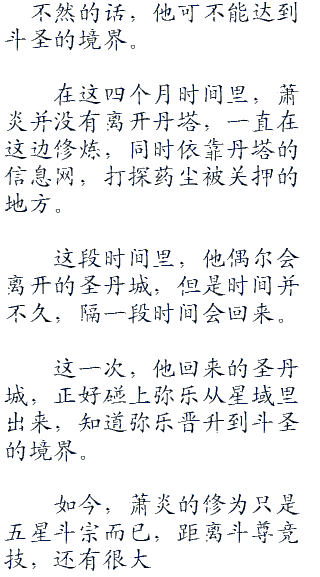 不然的话，他可不能达到
斗圣的境界。
在这四个月时间里，萧
炎并没有离开丹塔，一直在
这边修炼，同时依靠丹塔的
信息网，打探药尘被关押的
地方。
这段时间里，他偶尔会
离开的圣丹城，但是时间并
不久，隔一段时间会回来。
这一次，他回来的圣丹
城，正好碰上弥乐从星域里
出来，知道弥乐晋升到斗圣
的境界。
如今，萧炎的修为只是
五星斗宗而已，距离斗尊竞
技，还有很大